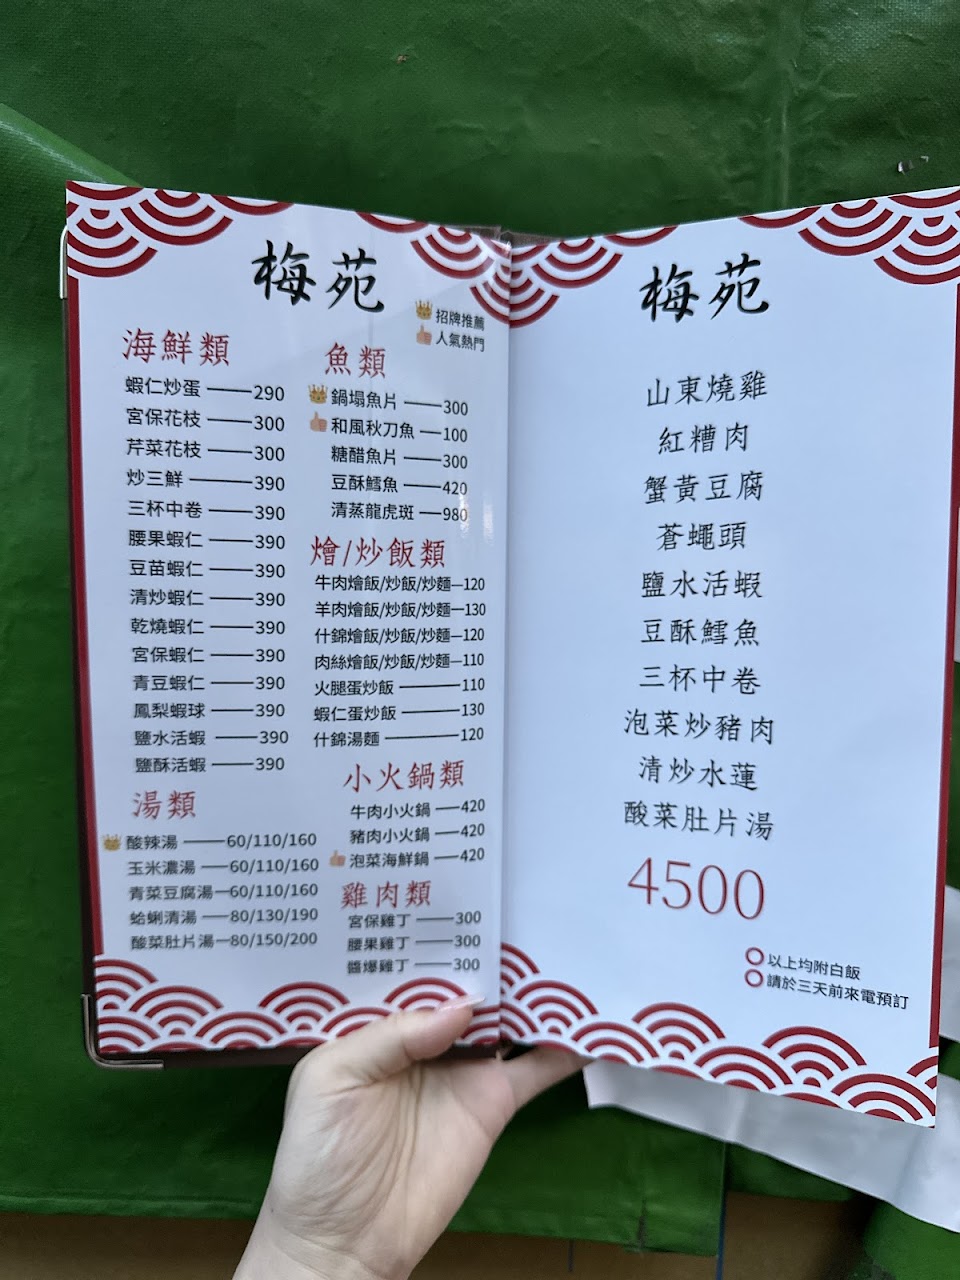 梅苑
招牌推薦
人氣熱門
海鮮類
蝦仁炒蛋 290
宮保花枝 300
芹菜花枝 300
炒三鮮 390
三杯中卷 390
腰果蝦仁 390
豆苗蝦仁 390
清炒蝦仁 390
乾燒蝦仁 390
宮保蝦仁 390
青豆蝦仁 390
鳳梨蝦球 390
鹽水活蝦 390
鹽酥活蝦 390
湯類
酸辣湯 60/110/160
玉米濃湯 60/110/160
青菜豆腐湯 60/110/160
蛤蜊清湯 80/130/190
酸菜肚片湯 80/150/200
魚類
鍋塌魚片 300
和風秋刀魚 100
糖醋魚片 300
豆酥鱈魚 420
清蒸龍虎斑 980
燴/炒飯類
牛肉燴飯/炒飯/炒麵 120
羊肉燴飯/炒飯/炒麵 130
什錦燴飯/炒飯/炒麵 120
肉絲燴飯/炒飯/炒麵 110
火腿蛋炒飯 110
蝦仁蛋炒飯 130
什錦湯麵 120
小火鍋類
牛肉小火鍋 420
豬肉小火鍋 420
泡菜海鮮鍋 420
雞肉類
宮保雞丁 300
腰果雞丁 300
醬爆雞丁 300
梅苑
山東燒雞
紅糟肉
蟹黃豆腐
蒼蠅頭
鹽水活蝦
豆酥鱈魚
三杯中卷
泡菜炒豬肉
清炒水蓮
酸菜肚片湯
4500
以上均附白飯
請於三天前來電預訂